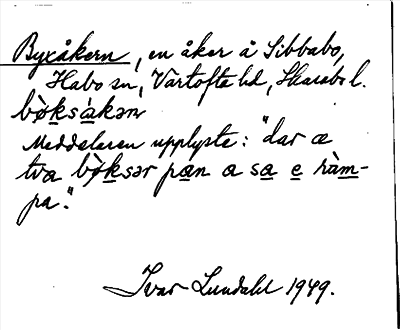 Byxåkern, en åker å Sibbabo,
Habo sn, Vartofta hd, Skarabo l.
bøksåkən
Meddelaren upplyste: "dar æ
tva bøksər pæn a sa e ràm-
pa".
Ivar Lundahl 1949.